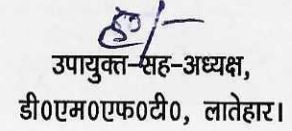 ह०/-
उपायुक्त-सह-अध्यक्ष,
डी०एम०एफ०टी०, लातेहार।